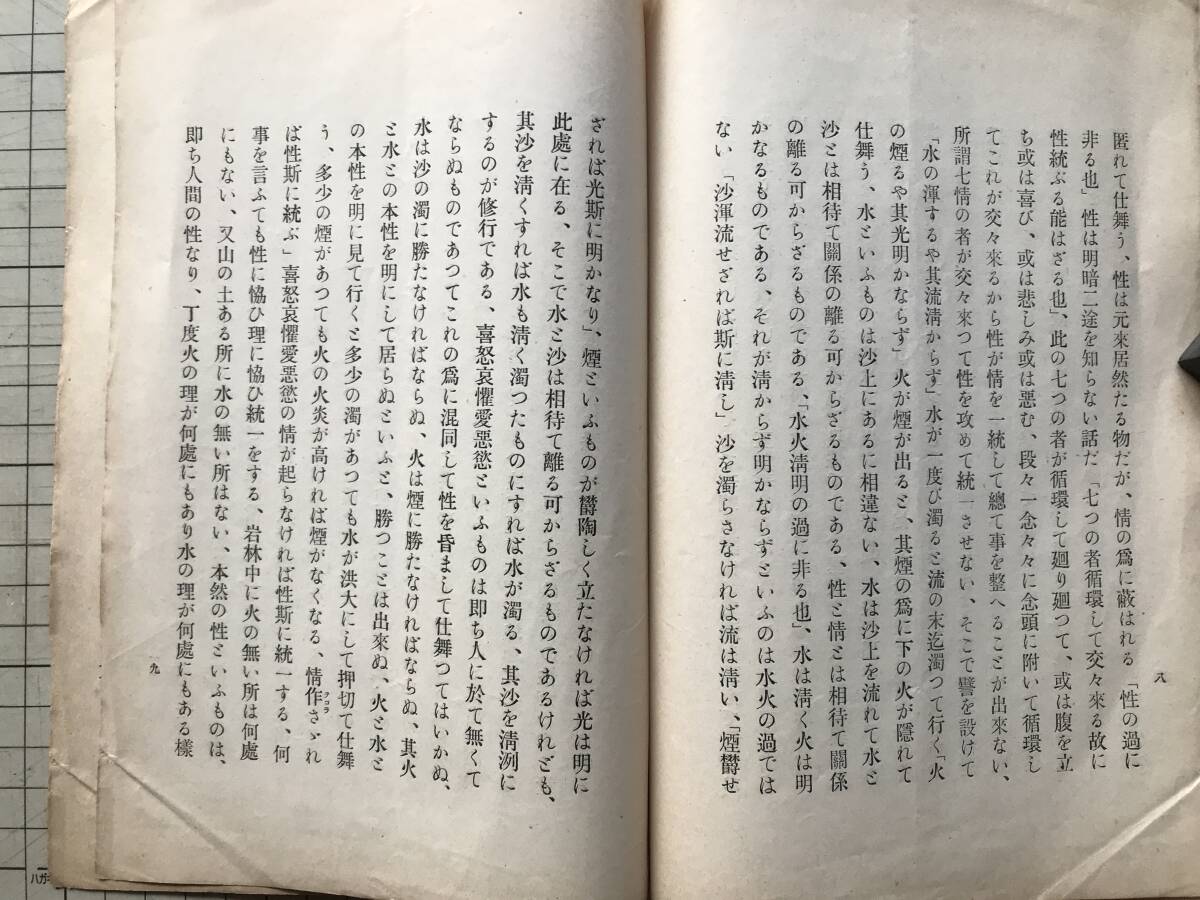 八
匿れて仕舞う、性は元來居然たる物だが、情の爲に蔽はれる「性の過に
非る也」性は明暗二途を知らない話だ「七つの者循環して交々來る故に
性統ぶる能はざる也」、此の七つの者が循環して廻り廻つて、或は腹を立
ち或は喜び、或は悲しみ或は惡む、段々一念々々に念頭に附いて循環し
てこれが交々來るから性が情を一統して總て事を整へることが出來ない、
所謂七情の者が交々來つて性を攻めて統一させない、そこで譬を設けて
「水の渾するや其流清からず」水が一度び濁ると流の末迄濁つて行く「火
の煙るや其光明かならず」火が煙が出ると、其煙の爲に下の火が隱れて
仕舞う、水といふものは沙上にあるに相違ない、水は沙上を流れて水と
沙とは相待て關係の離る可からざるものである、性と情とは相待て關係
の離る可からざるものである、「水火清明の過に非る也」、水は清く火は明
かなるものである、それが清からず明かならずといふのは水火の過では
ない「沙渾流せざれば斯に清し」沙を濁らさなければ流は清い、「煙欝せ
ざれば光斯に明かなり」、煙といふものが欝陶しく立たなければ光は明に
此處に在る、そこで水と沙は相待て離る可からざるものであるけれども、
其沙を清くすれば水も清く濁つたものにすれば水が濁る、其沙を清洌に
するのが修行である、喜怒哀懼愛惡慾といふものは即ち人に於て無くて
ならぬものであつてこれの爲に混同して性を昏まして仕舞つてはいかぬ、
水は沙の濁に勝たなければならぬ、火は煙に勝たなければならぬ、其火
と水との本性を明にして居らぬといふと、勝つことは出來ぬ、火と水と
の本性を明に見て行くと多少の濁があつても水が洪大にして押切て仕舞
う、多少の煙があつても火の火炎が高ければ煙がなくなる、情作さゞれ
ば性斯に統ぶ」喜怒哀懼愛惡慾の情が起らなければ性斯に統一する、何
事を言ふても性に恊ひ理に恊ひ統一をする、岩林中に火の無い所は何處
にもない、又山の土ある所に水の無い所はない、本然の性といふものは、
即ち人間の性なり、丁度火の理が何處にもあり水の理が何處にもある樣
九